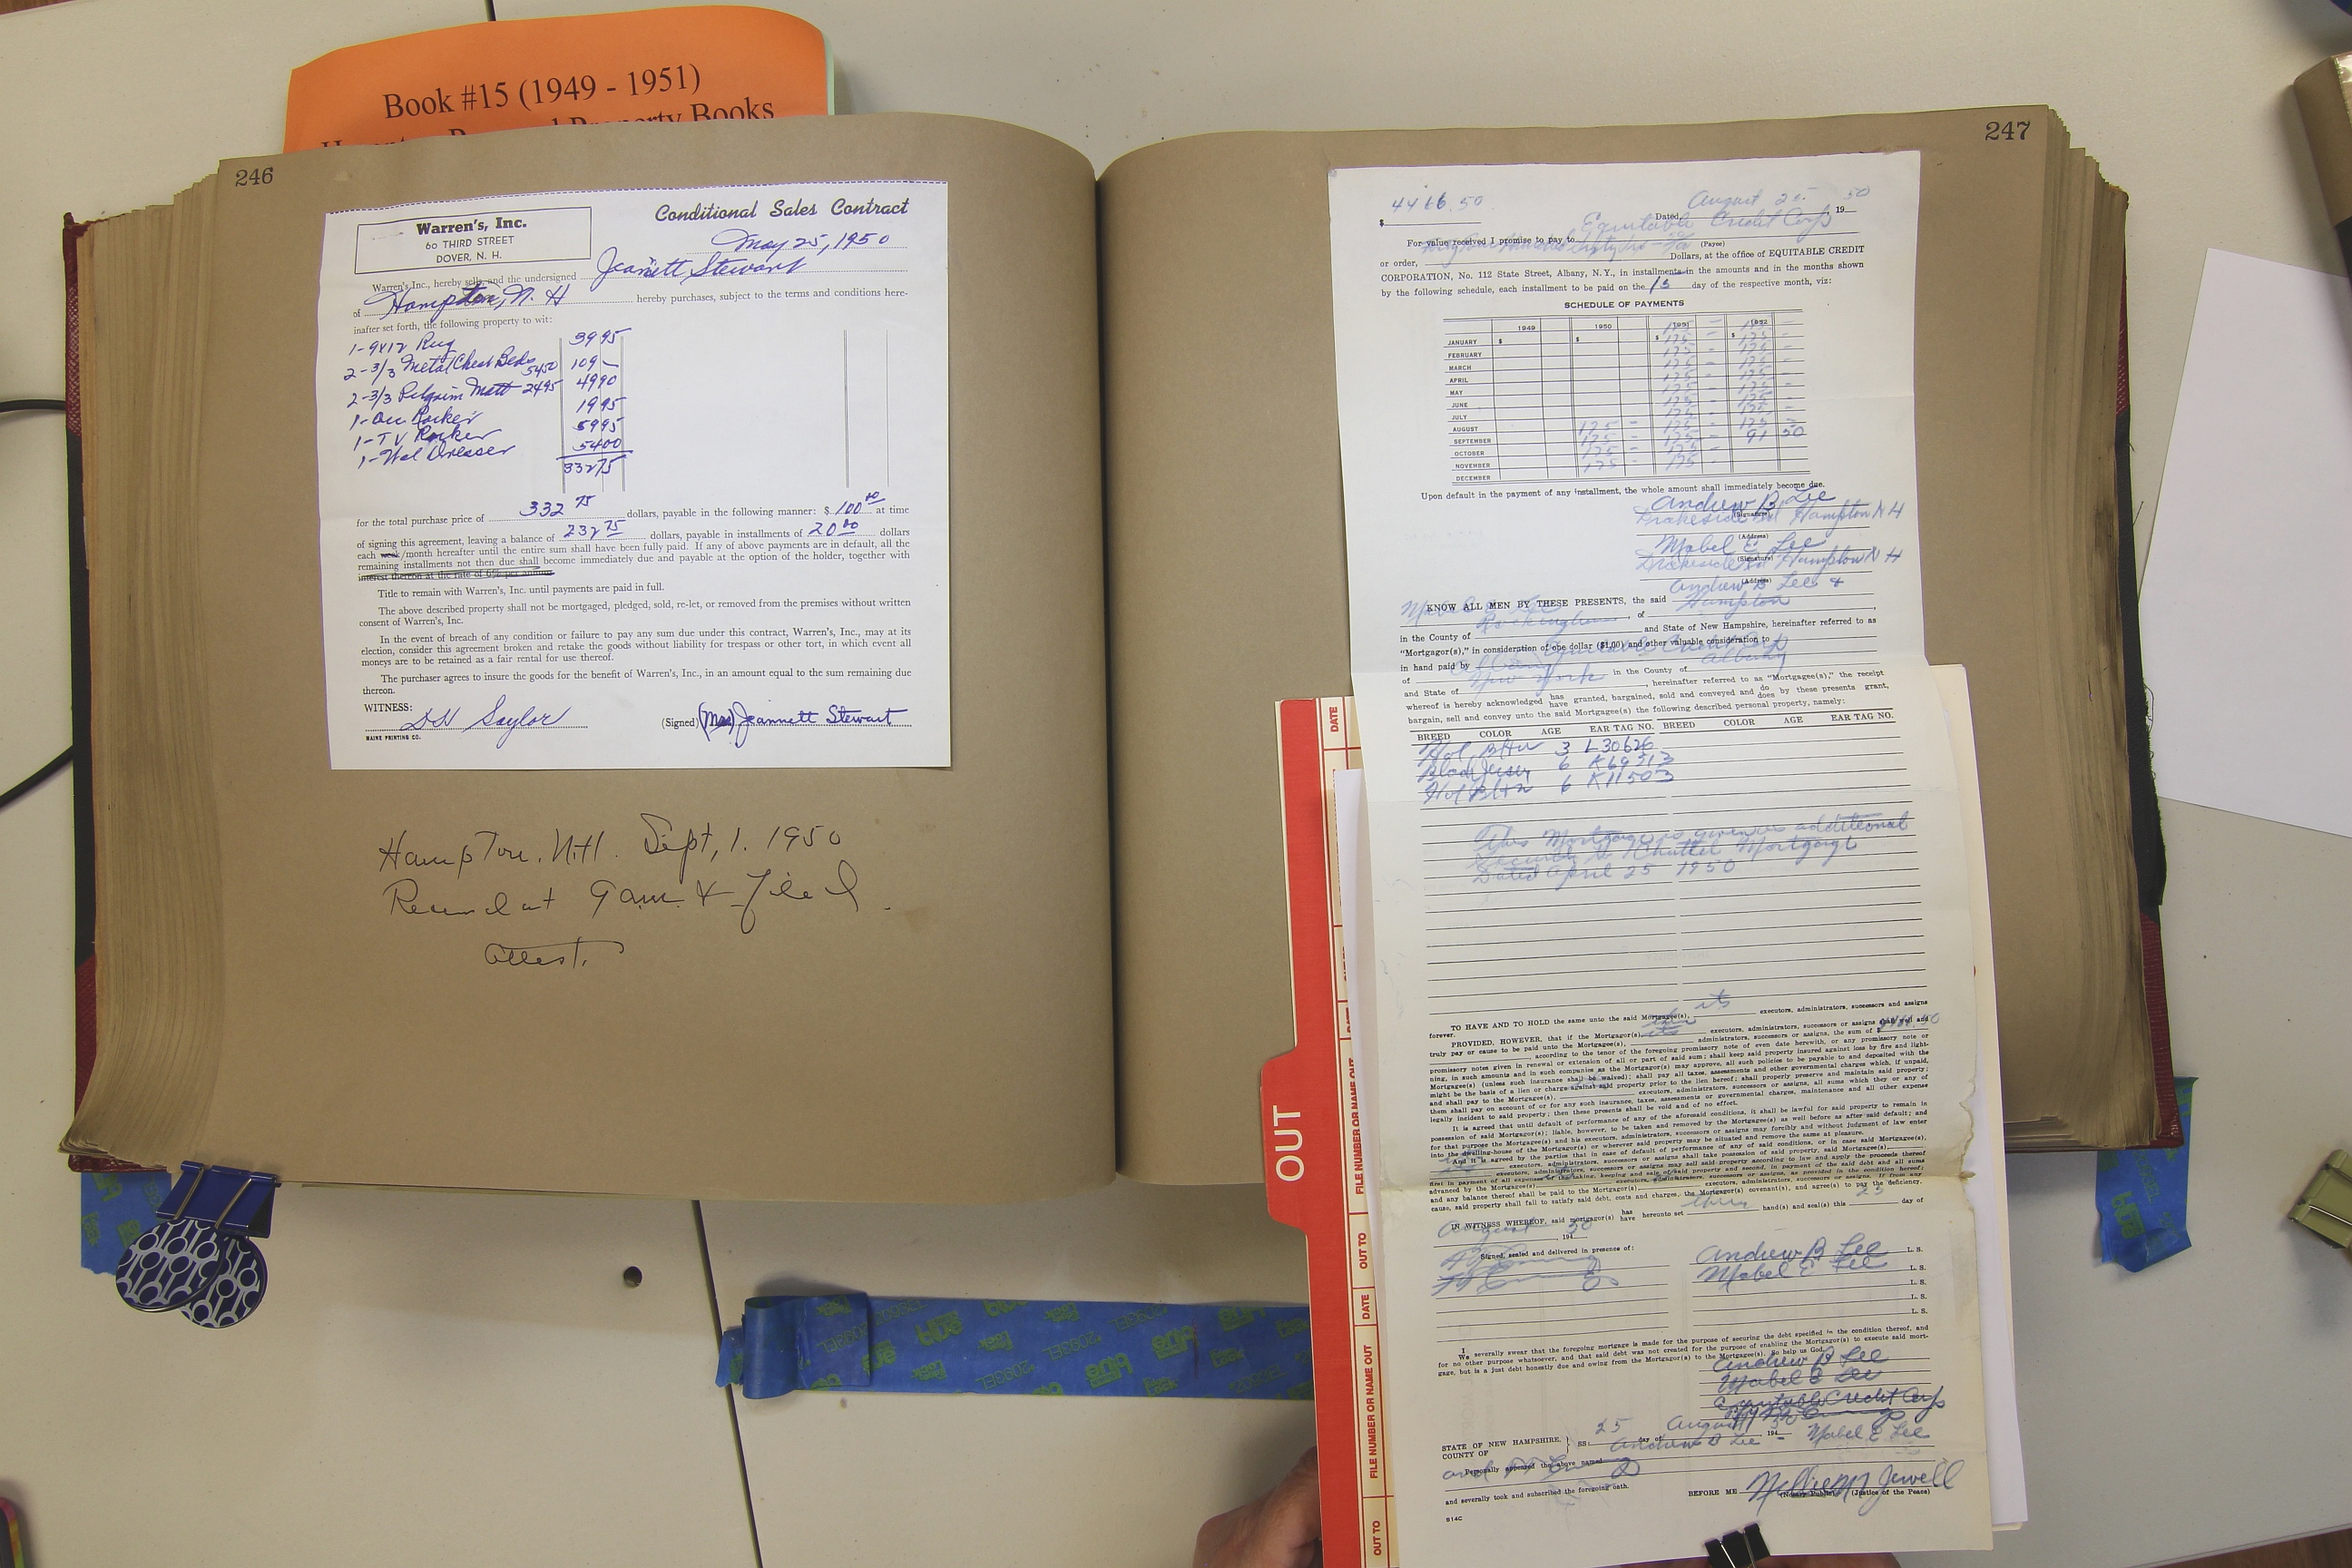 Book #15 (1949 - 1951)
Property Books
246
Warren's, Inc.
60 THIRD STREET
DOVER, N. H.
Conditional Sales Contract
May 25, 1950
Warren's Inc., hereby sells, and the undersigned Jeanett Stewart
of Hampton, N. H hereby purchases, subject to the terms and conditions here-
inafter set forth, the following property to wit:
1-9x12 Rug 3995
2-3/3 Metal Chest Beds 5450 109 -
2-3/3 Pilgrim Matt 2495 4990
1- Rocker 1995
1-TV Rocker 5995
1-Wal Dresser 5400
33275
for the total purchase price of 332 75 dollars, payable in the following manner: $ 100 00 at time
of signing this agreement, leaving a balance of 232 75 dollars, payable in installments of 20 00 dollars
each week/month hereafter until the entire sum shall have been fully paid. If any of above payments are in default, all the
remaining installments not then due shall become immediately due and payable at the option of the holder, together with
interest thereon at the rate of 6% per annum.
Title to remain with Warren's, Inc. until payments are paid in full.
The above described property shall not be mortgaged, pledged, sold, re-let, or removed from the premises without written
consent of Warren's, Inc.
In the event of breach of any condition or failure to pay any sum due under this contract, Warren's, Inc., may at its
election, consider this agreement broken and retake the goods without liability for trespass or other tort, in which event all
moneys are to be retained as a fair rental for use thereof.
The purchaser agrees to insure the goods for the benefit of Warren's, Inc., in an amount equal to the sum remaining due
thereon.
WITNESS:
DH Saylor (Signed) (Mrs) Jeannett Stewart
MAINE PRINTING CO.
Hampton. N.H. Sept, 1. 1950
Received at 9 am. & Filed.
Attest.
247
$ 4466.50 Dated, August 25. 1950
For value received I promise to pay to Equitable Credit Corp (Payee)
or order, Dollars, at the office of EQUITABLE CREDIT
CORPORATION, No. 112 State Street, Albany, N.Y., in installments in the amounts and in the months shown
by the following schedule, each installment to be paid on the 15 day of the respective month, viz:
SCHEDULE OF PAYMENTS
1949 1950 1951 1952
JANUARY $ $ $ 175 - $ 175 -
FEBRUARY 175 - 175 -
MARCH 175 - 175 -
APRIL 175 - 175 -
MAY 175 - 175 -
JUNE 175 - 175 -
JULY 175 - 175 -
AUGUST 175 - 175 -
SEPTEMBER 175 - 175 - 91 50
OCTOBER 175 - 175 -
NOVEMBER 175 - 175 -
DECEMBER
Upon default in the payment of any installment, the whole amount shall immediately become due.
Andrew B Lee
(Signature)
Drakeside Rd Hampton N H
(Address)
Mabel E Lee
(Signature)
Drakeside Rd Hampton N H
(Address)
Andrew B Lee &
KNOW ALL MEN BY THESE PRESENTS, the said
Mabel E Lee, of Hampton
in the County of Rockingham and State of New Hampshire, hereinafter referred to as
"Mortgagor(s)," in consideration of one dollar ($1.00) and other valuable consideration to
in hand paid by Equitable Credit Corp
of Albany in the County of Albany
and State of New York, hereinafter referred to as "Mortgagee(s)," the receipt
whereof is hereby acknowledged has have granted, bargained, sold and conveyed and do does by these presents grant,
bargain, sell and convey unto the said Mortgagee(s) the following described personal property, namely:
BREED COLOR AGE EAR TAG NO. BREED COLOR AGE EAR TAG NO.
Hol B+W 3 L30626
Black Jersey 6 K69313
Hol B+W 6 K11503
This Mortgage is given as additional
Security to Chattel Mortgage
Dated April 25 1950
TO HAVE AND TO HOLD the same unto the said Mortgagee(s), its executors, administrators, successors and assigns
forever.
PROVIDED, HOWEVER, that if the Mortgagor(s), their executors, administrators, successors or assigns shall well and
truly pay or cause to be paid unto the Mortgagee(s), its administrators, successors or assigns, the sum of $4466.50
, according to the tenor of the foregoing promissory note of even date herewith, or any promissory note or
promissory notes given in renewal or extension of all or part of said sum; shall keep said property insured against loss by fire and light-
ning, in such amounts and in such companies as the Mortgagee(s) may approve, all such policies to be payable to and deposited with the
Mortgagee(s) (unless such insurance shall be waived); shall pay all taxes, assessments and other governmental charges which, if unpaid,
might be the basis of a lien or charge against said property prior to the lien hereof; shall properly preserve and maintain said property;
and shall pay to the Mortgagee(s), executors, administrators, successors or assigns, all sums which they or any of
them shall pay on account of or for any such insurance, taxes, assessments or governmental charges, maintenance and all other expense
legally incident to said property; then these presents shall be void and of no effect.
It is agreed that until default of performance of any of the aforesaid conditions, it shall be lawful for said property to remain in
possession of said Mortgagor(s); liable, however, to be taken and removed by the Mortgagee(s) as well before as after said default; and
for that purpose the Mortgagee(s) and his executors, administrators, successors or assigns may forcibly and without judgment of law enter
into the dwelling-house of the Mortgagor(s) or wherever said property may be situated and remove the same at pleasure.
And it is agreed by the parties that in case of default of performance of any of said conditions, or in case said Mortgagee(s),
executors, administrators, successors or assigns shall take possession of said property, said Mortgagee(s)
executors, administrators, successors or assigns may sell said property according to law and apply the proceeds thereof
first in payment of all expenses of the taking, keeping and sale of said property and second, in payment of the said debt and all sums
advanced by the Mortgagee(s), executors, administrators, successors or assigns, as provided in the condition hereof;
and any balance thereof shall be paid to the Mortgagor(s), executors, administrators, successors or assigns. If from any
cause, said property shall fail to satisfy said debt, costs and charges, the Mortgagor(s) covenant(s), and agree(s) to pay the deficiency.
IN WITNESS WHEREOF, said mortgagor(s) has have hereunto set their hand(s) and seal(s) this 25 day of
August, 194 50
Signed, sealed and delivered in presence of:
Andrew B Lee L. S.
Mabel E Lee L. S.
L. S.
L. S.
L. S.
I We severally swear that the foregoing mortgage is made for the purpose of securing the debt specified in the condition thereof, and
for no other purpose whatsoever, and that said debt was not created for the purpose of enabling the Mortgagor(s) to execute said mort-
gage, but is a just debt honestly due and owing from the Mortgagor(s) to the Mortgagee(s). So help us God.
Andrew B Lee
Mabel E Lee
Equitable Credit Corp
STATE OF NEW HAMPSHIRE,
COUNTY OF } SS: 25 day of August 194
Personally appeared the above named Andrew B Lee - Mabel E Lee
and
and severally took and subscribed the foregoing oath.
BEFORE ME Nellie M Jewell
(Notary Public) (Justice of the Peace)
S14C
OUT
DATE
FILE NUMBER OR NAME OUT
OUT TO
DATE
FILE NUMBER OR NAME OUT
OUT TO